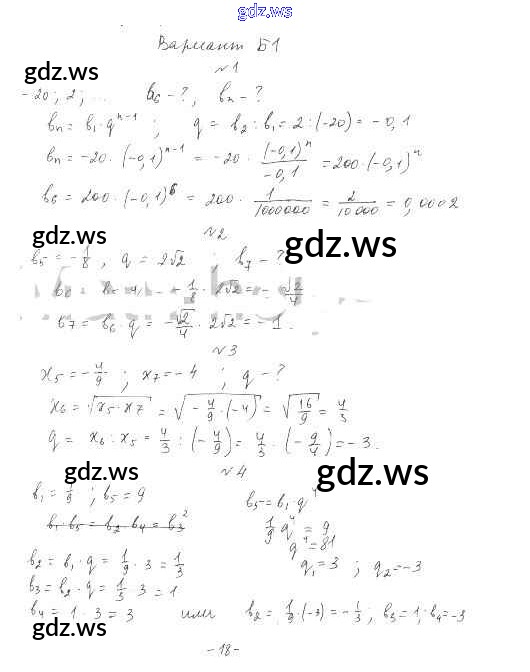 gdz.ws
Вариант Б1
№1
gdz.ws
-20; 2; ... b₆ - ?, bₙ - ?
bₙ = b₁ · qⁿ⁻¹ ; q = b₂ : b₁ = 2 : (-20) = -0,1
bₙ = -20 · (-0,1)ⁿ⁻¹ = -20 · (-0,1)ⁿ/-0,1 = 200 · (-0,1)ⁿ
b₆ = 200 · (-0,1)⁶ = 200 · 1/1000000 = 2/10000 = 0,0002
gdz.ws
№2
gdz.ws
b₅ = -1/8, q = 2√2 ; b₇ - ?
- 1/8 · 2√2 = - √2/4
b₇ = b₆ · q = -√2/4 · 2√2 = -1.
№3
x₅ = -4/9 ; x₇ = -4 ; q - ?
x₆ = √(x₅ · x₇) = √(-4/9 · (-4)) = √(16/9) = 4/3
q = x₆ : x₅ = 4/3 : (-4/9) = 4/3 · (-9/4) = -3.
№4
gdz.ws
gdz.ws
b₁ = 1/9 ; b₅ = 9
b₅ = b₁ q⁴
b₁ · b₅ = b₂ b₄ = b₃²
1/9 q⁴ = 9
q⁴ = 81
q₁ = 3 ; q₂ = -3
b₂ = b₁ · q = 1/9 · 3 = 1/3
b₃ = b₂ · q = 1/3 · 3 = 1
b₄ = 1 · 3 = 3 или b₂ = 1/9 · (-3) = -1/3; b₃ = 1; b₄ = -3
gdz.ws
-18-